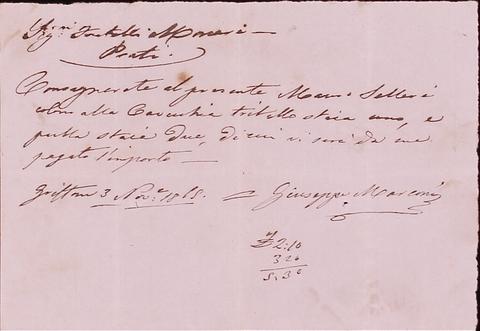 Sig.ri Fratelli Maneri
Prati.
Consegnerete al presente Marco Selleri
colmi alla Cavecchia tritello staia uno, e
pulla staia due, di cui vi sarà da me
pagato l'importo —
Griffone 3 Nov.e 1865. = Giuseppe Marconi
£ 2:10
3 20
5. 30